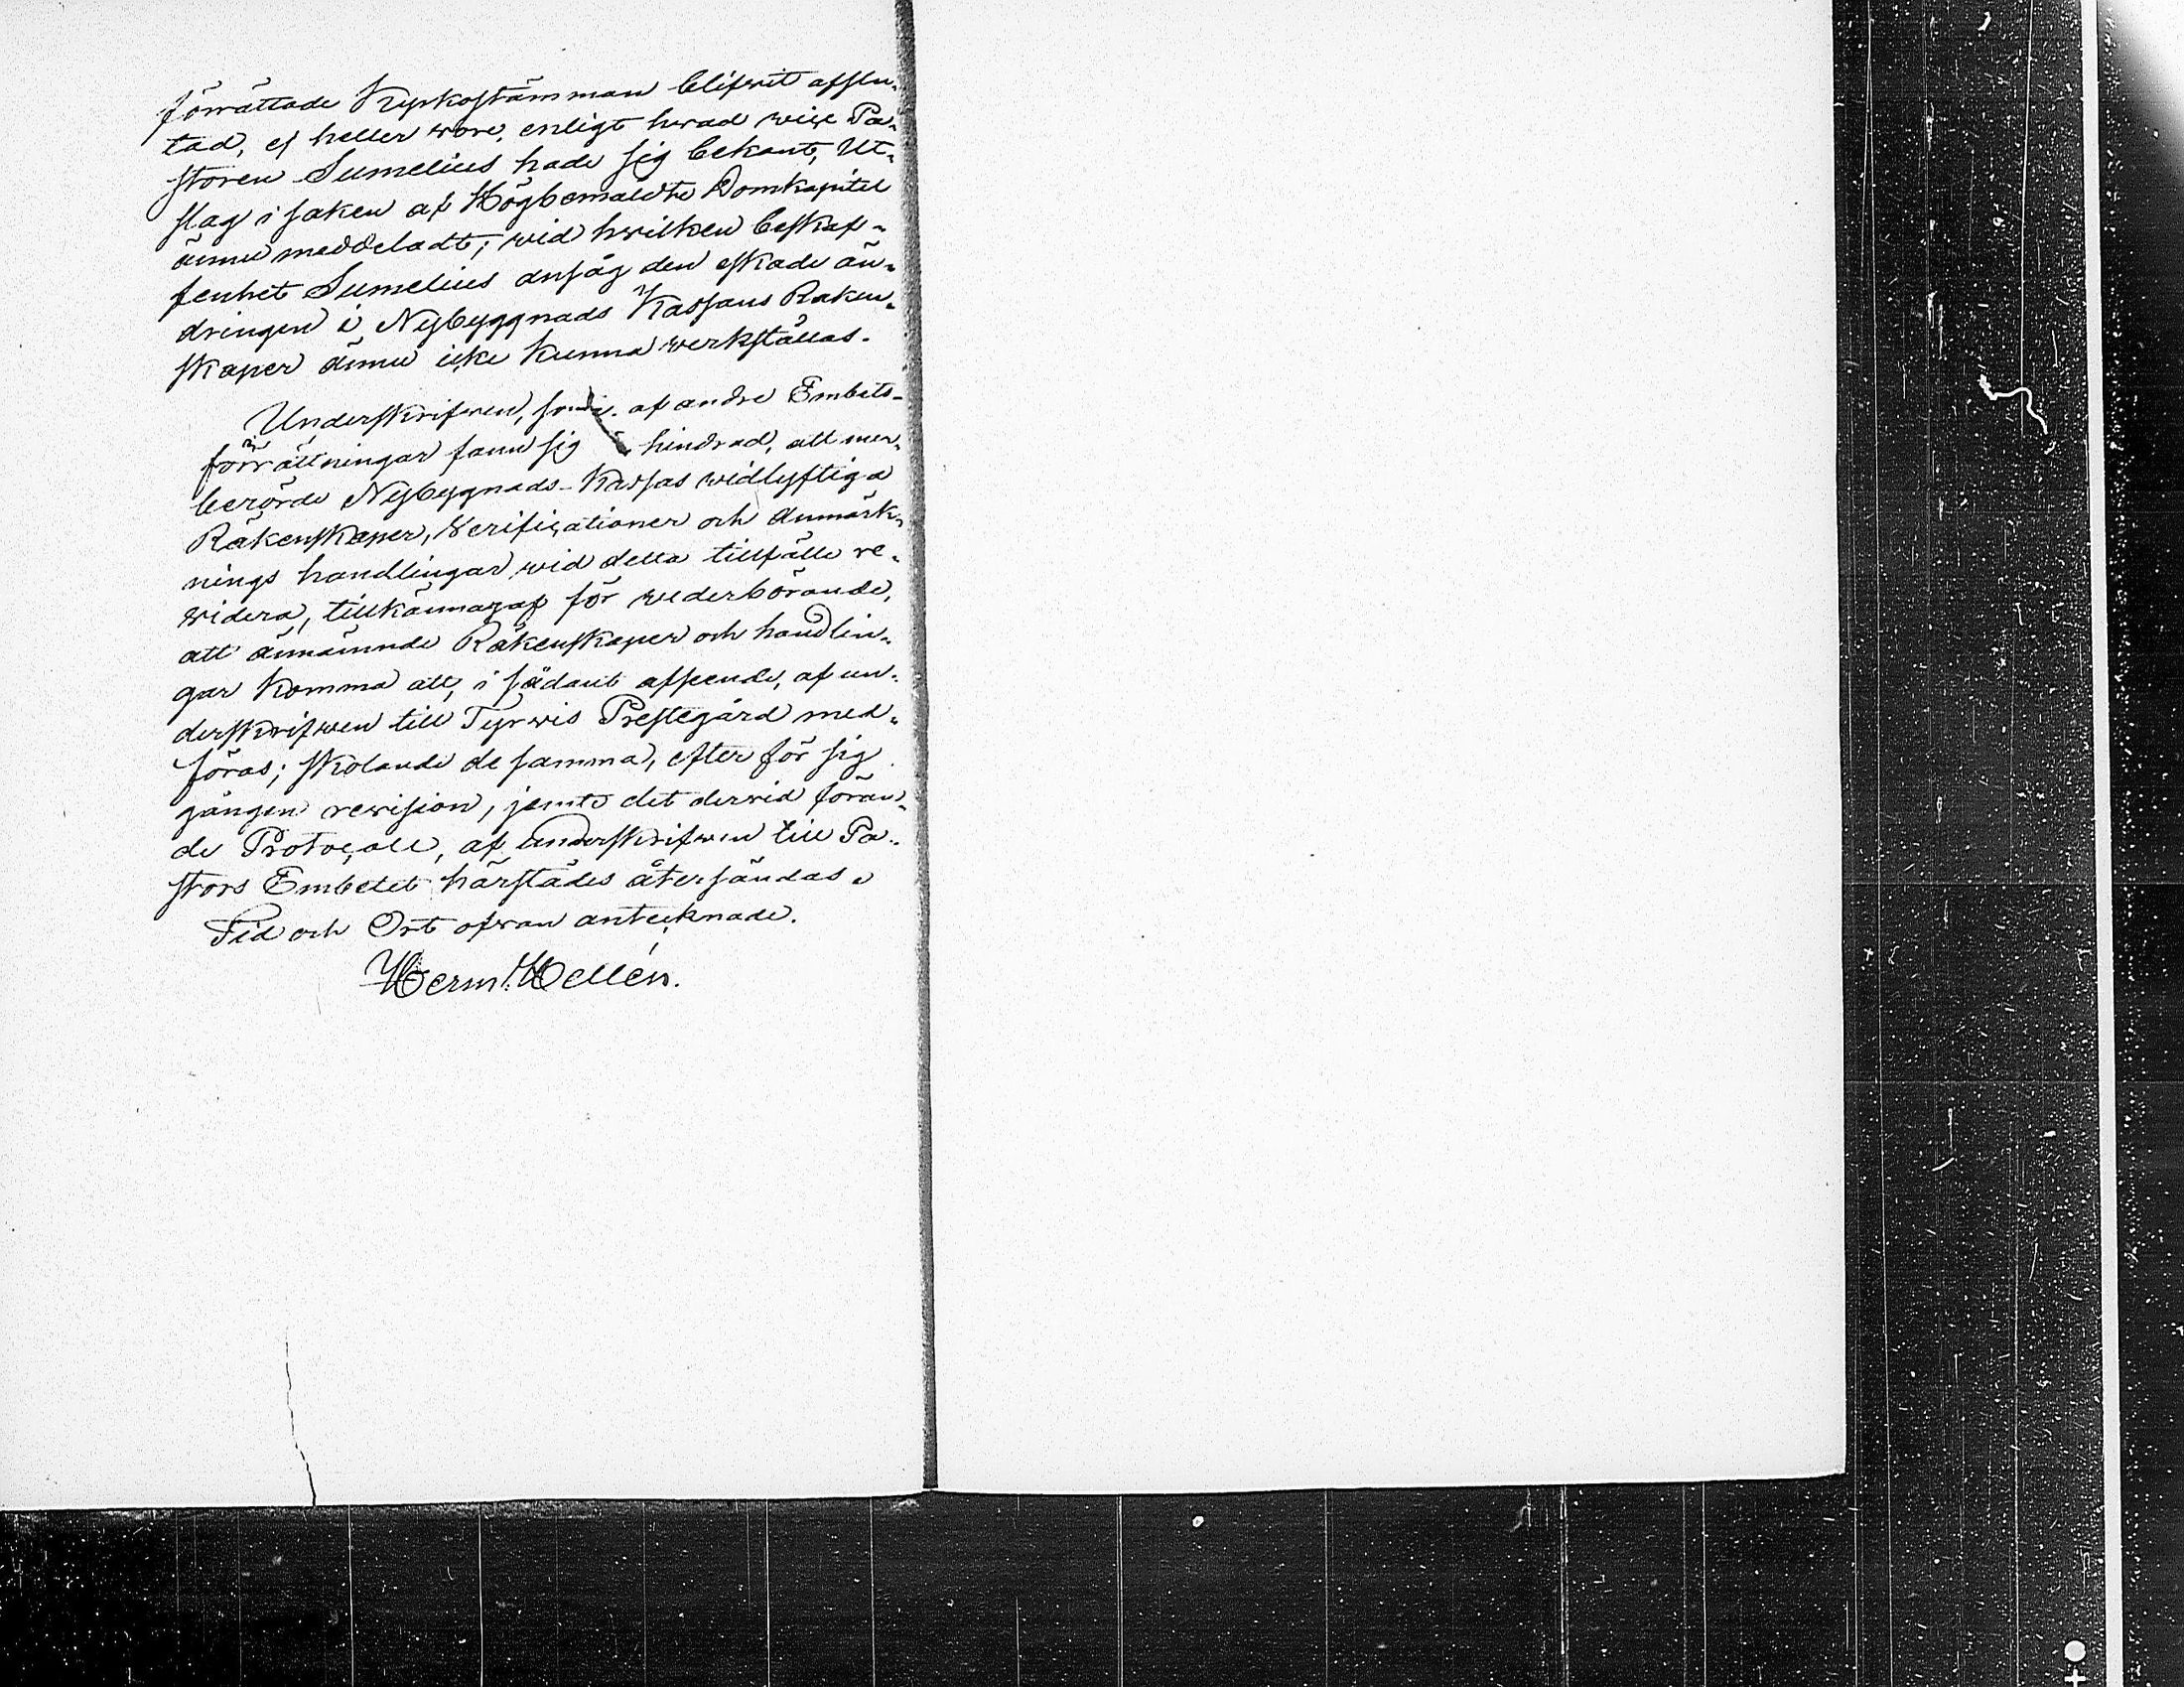 förrättade Kyrkostämman blifvit afslu-
tad, ej heller wore, enligt hwad vice Pa-
storen Sumelius hade sig bekant, Ut-
slag i saken af Högbemäldte Domkapitel
ännu meddeladt; wid hwilken beskaf-
fenhet Sumelius ansåg den eskade än-
dringen i Nybyggnads Kassans Räken-
skaper ännu icke kunna werkställas.
Underskrifwen, som af andre Embets-
förrättningar fann sig hindrad, att mer-
berörde Nybyggnads-Kassas widlyftiga
Räkenskaper, Verificationer och Anmärk-
nings handlingar wid detta tillfälle re-
widera, tillkännagaf för wederbörande,
att ännämnde Räkenskaper och handlin-
gar komma att, i sådant afseende, af un-
derskrifwen till Tyrwis Prestegård med-
föras; skolande de samma, efter för sig
gången revision, jemte det derwid föran-
de Protocoll, af underskrifwen till Pa-
stors Embetet härstädes återsändas.
Tid och Ort ofwan antecknade.
Herm. Hellén.